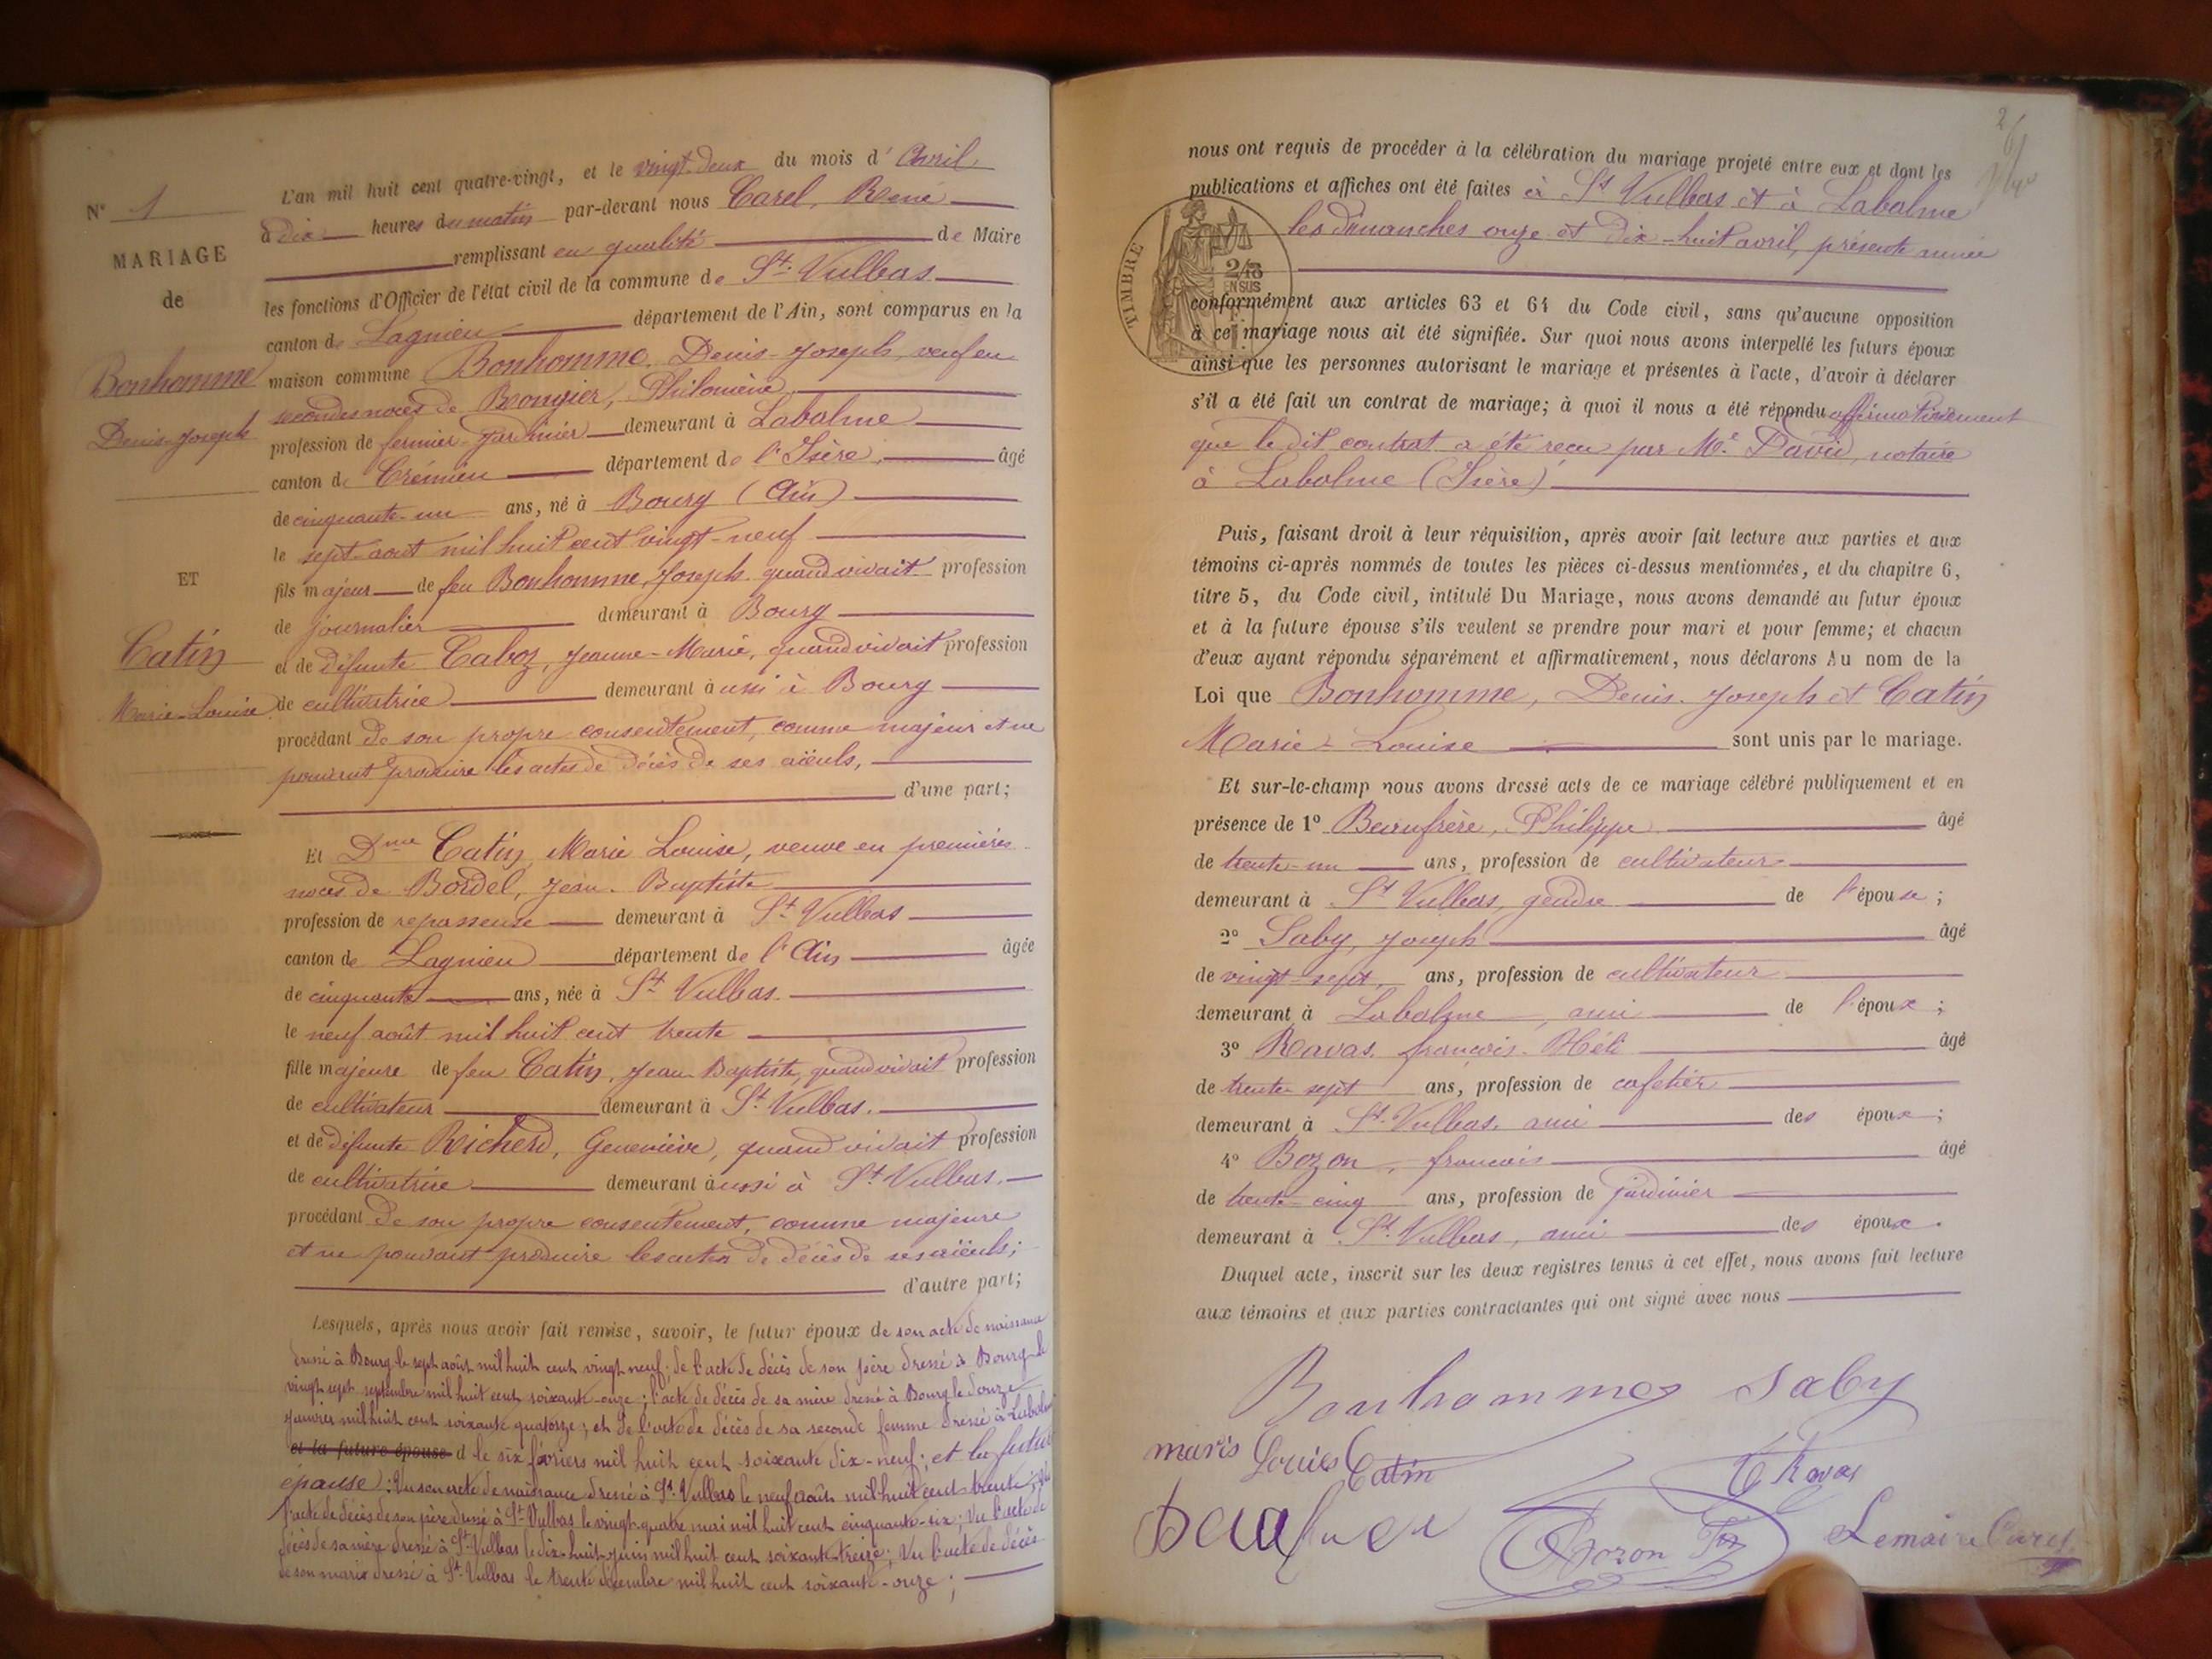 N° 1
MARIAGE
de
Bonhomme
Denis-Joseph
ET
Catin
Marie-Louise
L'an mil huit cent quatre-vingt, et le vingt-deux du mois d' Avril
à dix heures du matin par-devant nous Carel, René
remplissant en qualité de Maire
les fonctions d'Officier de l'état civil de la commune de St. Vulbas
canton de Lagnieu département de l'Ain, sont comparus en la
maison commune Bonhomme, Denis-Joseph, veuf en
secondes noces de Rongier, Philomène
profession de fermier-jardinier demeurant à Labalme
canton de Crémieu département de l'Isère, âgé
de cinquante-un ans, né à Bourg (Ain)
le sept août mil huit cent vingt-neuf
fils majeur de feu Bonhomme, Joseph quand vivait profession
de journalier demeurant à Bourg
et de défunte Caboz, Jeanne-Marie, quand vivait profession
de cultivatrice demeurant aussi à Bourg
procédant de son propre consentement, comme majeur et ne
pouvant produire les actes de décès de ses aïeuls,
d'une part;
Et Dme Catin, Marie Louise, veuve en premières
noces de Bordel, Jean-Baptiste
profession de repasseuse demeurant à St. Vulbas
canton de Lagnieu département de l'Ain âgée
de cinquante ans, née à St. Vulbas.
le neuf août mil huit cent trente
fille majeure de feu Catin, Jean Baptiste, quand vivait profession
de cultivateur demeurant à St. Vulbas.
et de défunte Richerd, Geneviève, quand vivait profession
de cultivatrice demeurant aussi à St. Vulbas.
procédant de son propre consentement, comme majeure
et ne pouvant produire les actes de décès de ses aïeuls;
d'autre part;
Lesquels, après nous avoir fait remise, savoir, le futur époux de son acte de naissance
dressé à Bourg le sept août mil huit cent vingt neuf; de l'acte de décès de son père dressé à Bourg le
vingt sept septembre mil huit cent soixante-onze; l'acte de décès de sa mère dressé à Bourg le douze
janvier mil huit cent soixante quatorze; et de l'acte de décès de sa seconde femme dressé à Labalme
et la future épouse d le six févriers mil huit cent soixante dix-neuf; et la future
épouse: Vu son acte de naissance dressé à St. Vulbas le neuf août mil huit cent trente;
l'acte de décès de son père dressé à St. Vulbas le vingt-quatre mai mil huit cent cinquante-six; Vu l'acte de
décès de sa mère dressé à St. Vulbas le dix-huit juin mil huit cent soixante-treize; Vu l'acte de décès
de son mari dressé à St. Vulbas le trente décembre mil huit cent soixante-onze;
nous ont requis de procéder à la célébration du mariage projeté entre eux et dont les
publications et affiches ont été faites à St Vulbas et à Labalme
les dimanches onze et dix-huit avril, présente année
TIMBRE
EN SUS
conformément aux articles 63 et 64 du Code civil, sans qu'aucune opposition
à ce mariage nous ait été signifiée. Sur quoi nous avons interpellé les futurs époux
ainsi que les personnes autorisant le mariage et présentes à l'acte, d'avoir à déclarer
s'il a été fait un contrat de mariage; à quoi il nous a été répondu affirmativement
que le dit contrat a été reçu par Me. David, notaire
à Labalme (Isère)
Puis, faisant droit à leur réquisition, après avoir fait lecture aux parties et aux
témoins ci-après nommés de toutes les pièces ci-dessus mentionnées, et du chapitre 6,
titre 5, du Code civil, intitulé Du Mariage, nous avons demandé au futur époux
et à la future épouse s'ils veulent se prendre pour mari et pour femme; et chacun
d'eux ayant répondu séparément et affirmativement, nous déclarons Au nom de la
Loi que Bonhomme, Denis-Joseph et Catin
Marie-Louise sont unis par le mariage.
Et sur-le-champ nous avons dressé acte de ce mariage célébré publiquement et en
présence de 1° Beaufrère, Philippe âgé
de trente-un ans, profession de cultivateur
demeurant à St Vulbas, gendre de l'épouse;
2° Saby, Joseph âgé
de vingt-sept, ans, profession de cultivateur
demeurant à Labalme, ami de l'époux;
3° Ravas, françois-Héli âgé
de trente-sept ans, profession de cafetier
demeurant à St. Vulbas, ami des époux;
4° Bozon, françois âgé
de trente-cinq ans, profession de jardinier
demeurant à St. Vulbas, ami des époux.
Duquel acte, inscrit sur les deux registres tenus à cet effet, nous avons fait lecture
aux témoins et aux parties contractantes qui ont signé avec nous
Bonhomme Saby
maris Louies Catin Ravas
Bozon Lemaire Carel